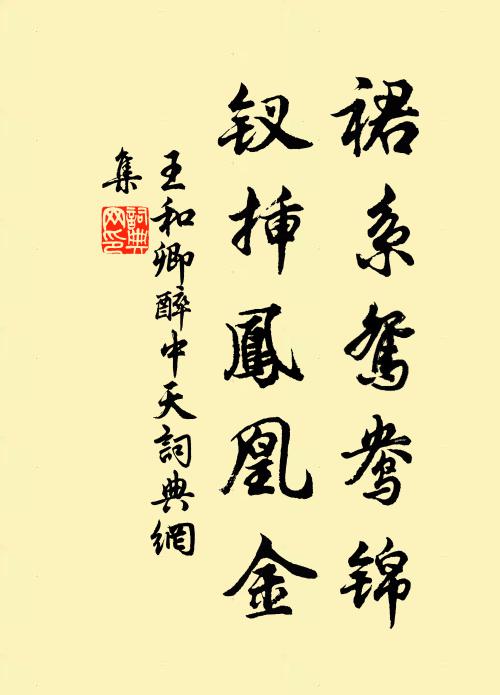 裙系鸳鸯锦
钗插鳳凰金
王和卿醉中天詞典網
集
詞典
网印